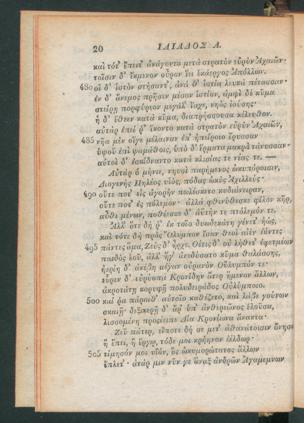 20 ΙΛΙΑΔΟΣ Α.
καὶ τότ' ἔπειτ' ἀνάγοντο μετὰ στρατὸν εὐρὺν Ἀχαιῶν·
τοῖσιν δ' ἴκμενον οὖρον ἵει ἑκάεργος Ἀπόλλων.
480 οἱ δ' ἱστὸν στήσαντ', ἀνά θ' ἱστία λευκὰ πέτασσαν·
ἐν δ' ἄνεμος πρῆσεν μέσον ἱστίον, ἀμφὶ δὲ κῦμα
στείρῃ πορφύρεον μεγάλ' ἴαχε, νηὸς ἰούσης·
ἡ δ' ἔθεεν κατὰ κῦμα, διαπρήσσουσα κέλευθον.
αὐτὰρ ἐπεί ῥ' ἵκοντο κατὰ στρατὸν εὐρὺν Ἀχαιῶν,
485 νῆα μὲν οἵγε μέλαιναν ἐπ' ἠπείροιο ἔρυσσαν
ὑψοῦ ἐπὶ ψαμάθοις, ὑπὸ δ' ἕρματα μακρὰ τάνυσσαν·
αὐτοὶ δ' ἐσκίδναντο κατὰ κλισίας τε νέας τε. —
Αὐτὰρ ὁ μήνιε, νηυσὶ παρήμενος ὠκυπόροισιν,
Διογενὴς Πηλέος υἱὸς, πόδας ὠκὺς Ἀχιλλεύς·
490 οὔτε ποτ' εἰς ἀγορὴν πωλέσκετο κυδιάνειραν,
οὔτε ποτ' ἐς πόλεμον· ἀλλὰ φθινύθεσκε φίλον κῆρ,
αὖθι μένων, ποθέεσκε δ' ἀϋτήν τε πτόλεμόν τε.
Ἀλλ' ὅτε δή ῥ' ἐκ τοῖο δυωδεκάτη γένετ' ἠώς,
καὶ τότε δὴ πρὸς Ὄλυμπον ἴσαν θεοὶ αἰὲν ἐόντες
495 πάντες ἅμα, Ζεὺς δ' ἦρχε. Θέτις δ' οὐ λήθετ' ἐφετμέων
παιδὸς ἑοῦ, ἀλλ' ἥγ' ἀνεδύσατο κῦμα θαλάσσης,
ἠερίη δ' ἀνέβη μέγαν οὐρανὸν Οὔλυμπόν τε·
εὗρεν δ' εὐρύοπα Κρονίδην ἄτερ ἥμενον ἄλλων,
ἀκροτάτῃ κορυφῇ πολυδειράδος Οὐλύμποιο.
500 καί ῥα πάροιθ' αὐτοῖο καθέζετο, καὶ λάβε γούνων
σκαιῇ· δεξιτερῇ δ' ἄρ ὑπ' ἀνθερεῶνος ἑλοῦσα,
λισσομένη προσέειπε Δία Κρονίωνα ἄνακτα·
Ζεῦ πάτερ, εἴποτε δή σε μετ' ἀθανάτοισιν ὄνησα
ἢ ἔπει, ἢ ἔργῳ, τόδε μοι κρήηνον ἐέλδωρ·
505 τίμησόν μοι υἱὸν, ὃς ὠκυμορώτατος ἄλλων
ἔπλετ'· ἀτάρ μιν νῦν γε ἄναξ ἀνδρῶν Ἀγαμέμνων